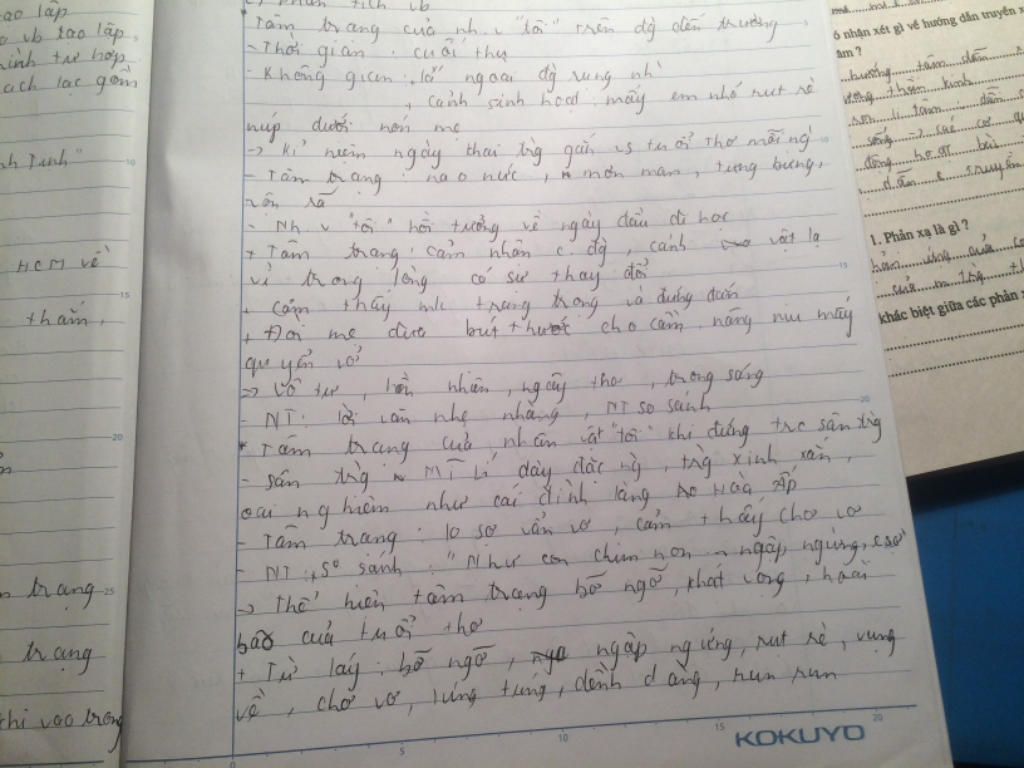 c) phân tích vb
* Tâm trạng của nh.v "tôi" trên đg đến trường
- Thời gian : cuối thu
- Không gian : lá ngoài đg rụng nh`
+ cảnh sinh hoạt : mấy em nhỏ rụt rè
núp dưới nón mẹ
-> kỉ niệm ngày khai trg gắn vs tuổi thơ
- Tâm trạng : nao nức, mơn man, tưng bừng,
rộn rã
- Nh v "tôi" hồi tưởng về ngày đầu đi học
+ Tâm trạng : cảm nhận c. đg, cảnh vật lạ
vì trong lòng có sự thay đổi
+ cảm thấy trang trọng và đứng đắn
+ Đòi mẹ đưa bút thước cho cầm, nâng niu mấy
quyển vở
=> vô tư, hồn nhiên, ngây thơ, trong sáng
- NT : lời văn nhẹ nhàng, NT so sánh
* Tâm trạng của nhân vật "tôi" khi đứng trc sân trg
- sân trg Mĩ Lí dày đặc ng, trg xinh xắn,
oai nghiêm như cái đình làng Hoà Ấp
- Tâm trạng : lo sợ vẩn vơ, cảm thấy chơ vơ
- NT : so sánh : "Như con chim non ngập ngừng, e sợ
-> Thể hiện tâm trạng bỡ ngỡ, khát vọng, hoài
bão của tuổi thơ
+ Từ láy : bỡ ngỡ, ngập ngừng, rụt rè, vụng
về, chơ vơ, lúng túng, dềnh dàng, run run
KOKUYO
ạo lập
vb tạo lập
trình tự hợp
mạch lạc gồm
HCM về
thăm,
trạng
trạng
khi vào trong
ó nhận xét gì về hướng dẫn truyền x
âm ?
hướng tâm dẫn
thần kinh
li tâm : dẫn
động
dẫn truyền
1. Phản xạ là gì ?
phản ứng của
khác biệt giữa các phản x